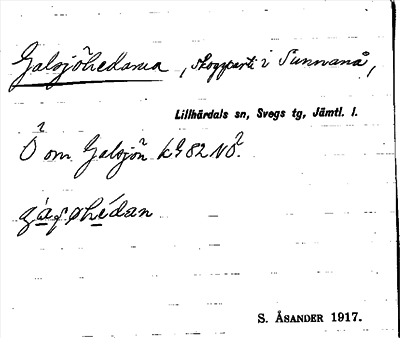 Galsjöhedarna, skogparti i Sunnanå,
Lillhärdals sn, Svegs tg, Jämtl. l.
Ö om Galsjön k G 82 NÖ.
S. ÅSANDER 1917.